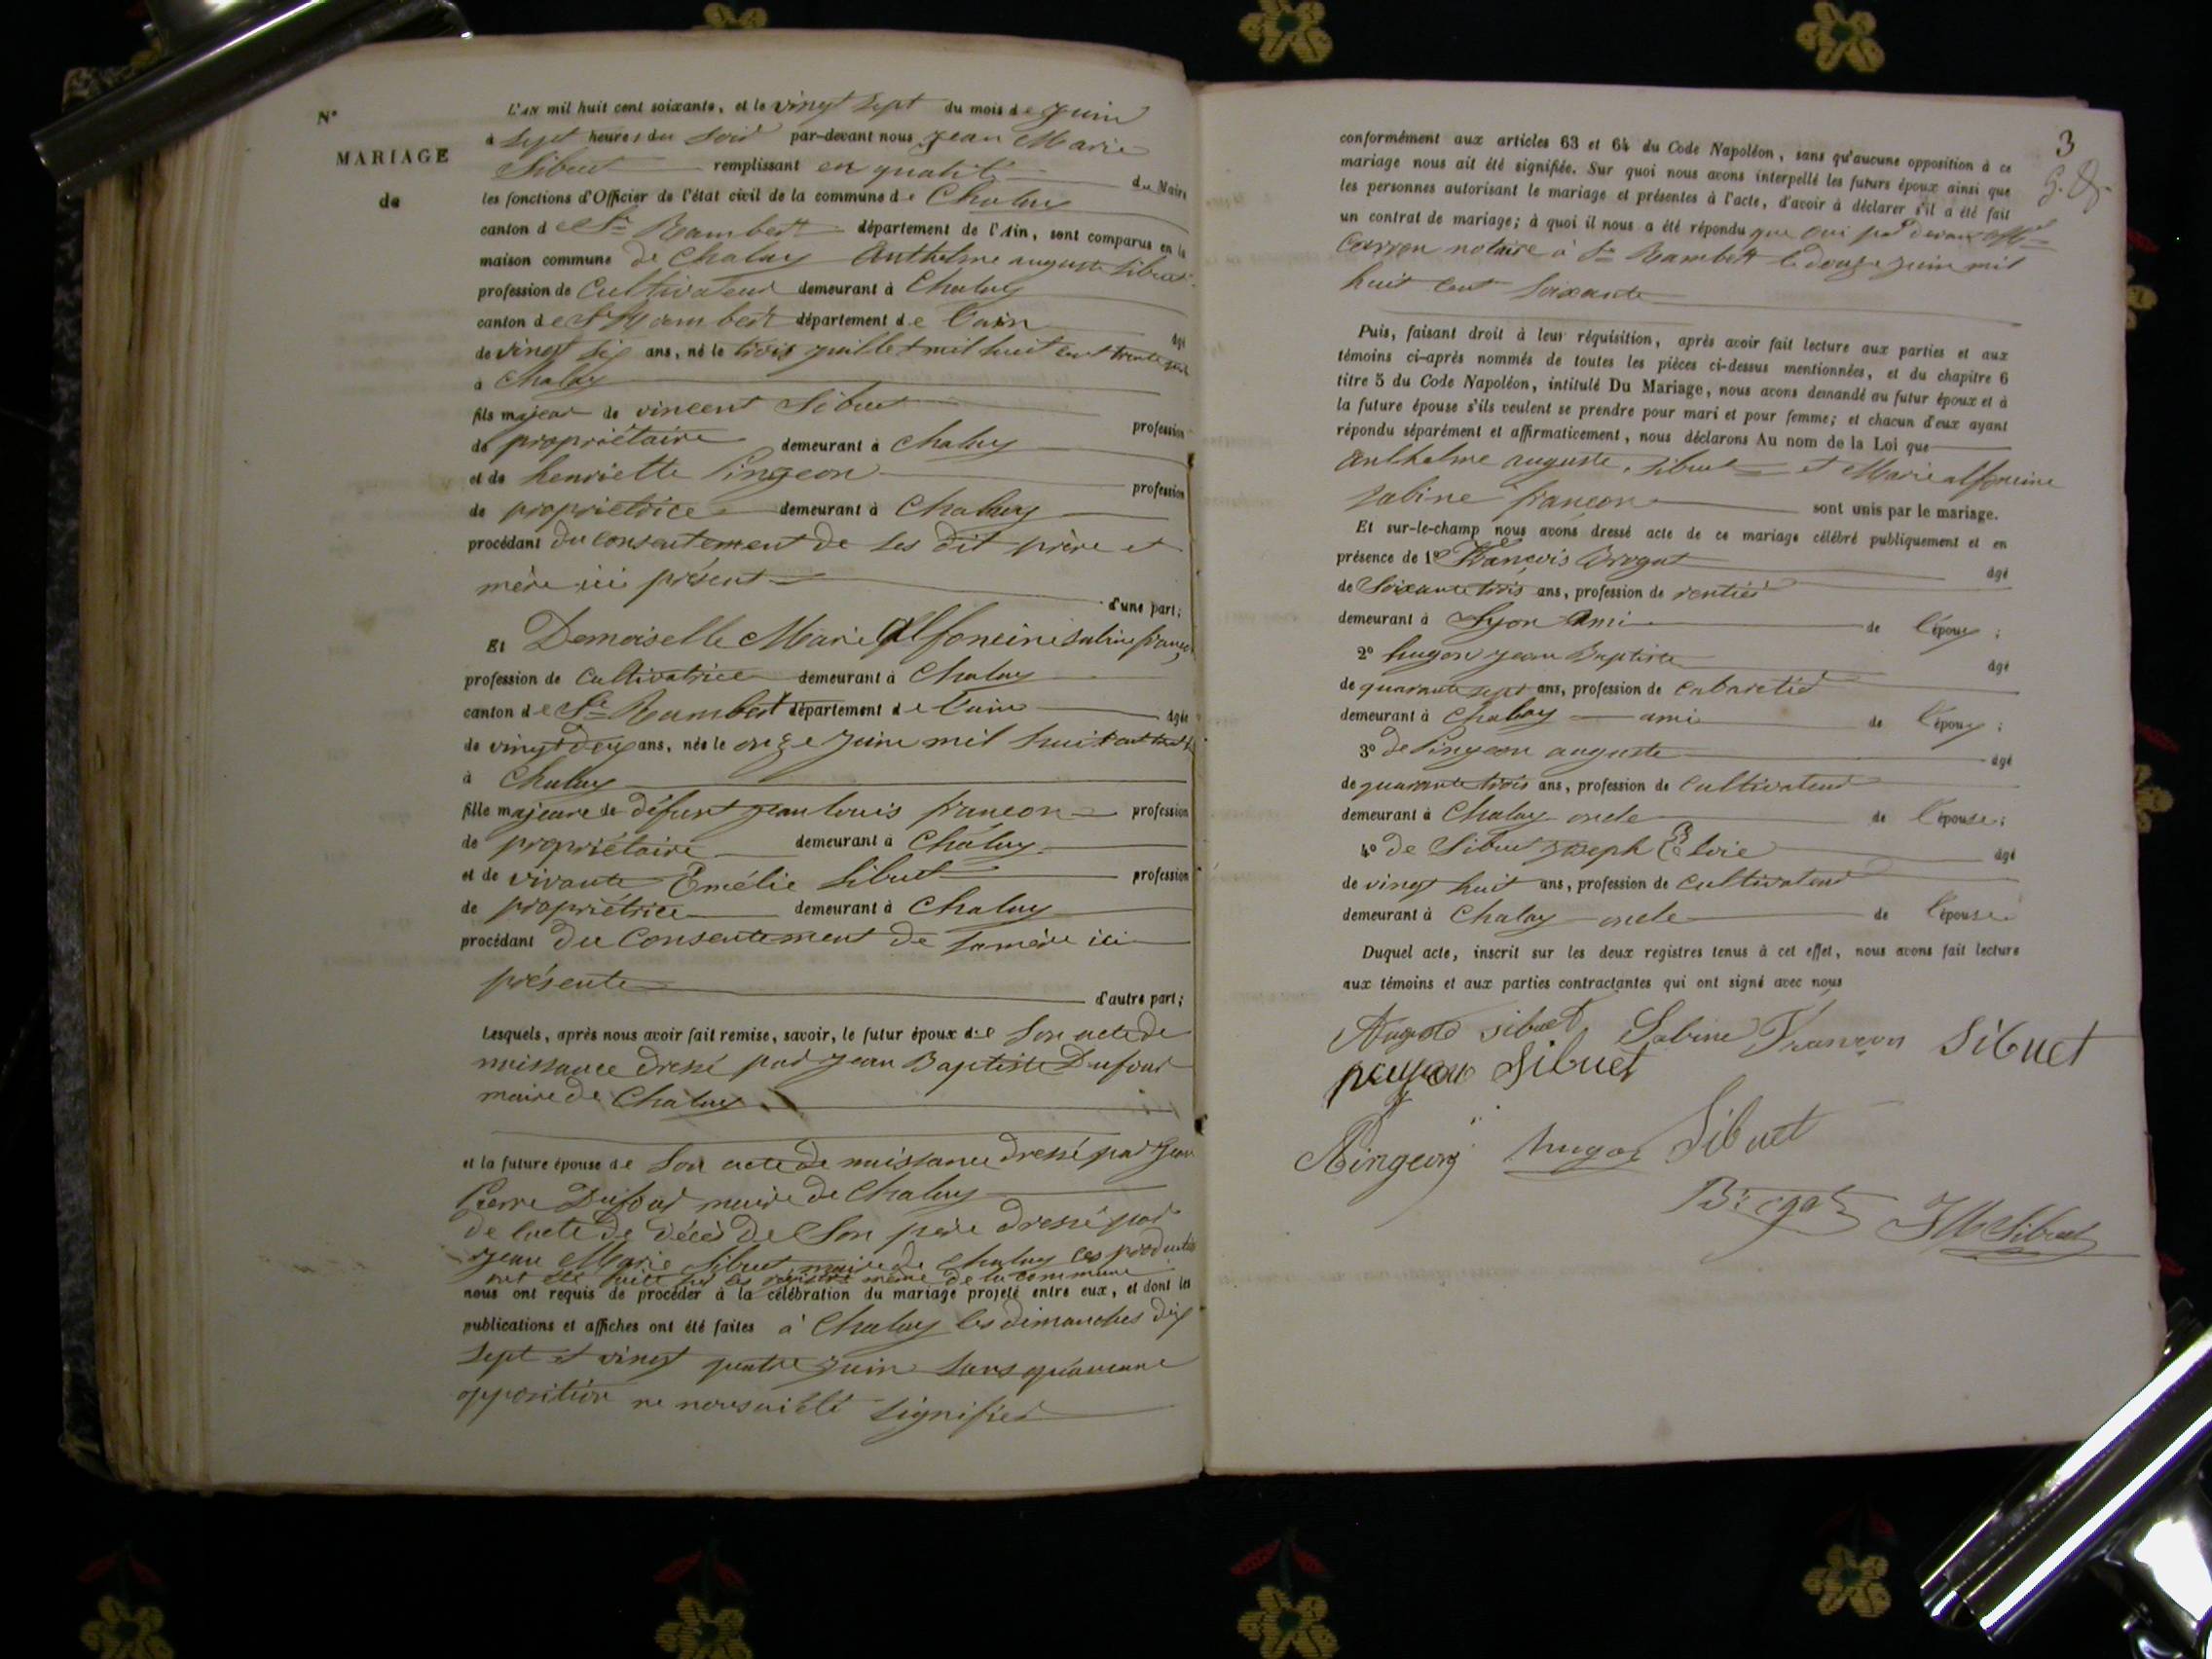 N°
MARIAGE
de
L'AN mil huit cent soixante, et le vingt sept du mois de Juin
à Sept heures du Soir par-devant nous Jean Marie
Sibuet remplissant en qualité de Maire
les fonctions d'Officier de l'état civil de la commune de Chaley
canton de St Rambert département de l'Ain, sont comparus en la
maison commune de Chaley Anthelme auguste Sibuet
profession de Cultivateur demeurant à Chaley
canton de St Rambert département de l'ain âgé
de vingt six ans, né le trois juillet mil huit cent trente
à Chaley
fils majeur de vincent Sibuet profession
de propriétaire demeurant à Chaley
et de henriette Pingeon profession
de propriétrice demeurant à Chaley
procédant du consentement de ses dit père et
mère ici présent d'une part;
Et Demoiselle Marie Alfoncine Sabine françon
profession de Cultivatrice demeurant à Chaley
canton de St Rambert département de l'ain âgée
de vingt deux ans, née le onze juin mil huit cent
à Chaley
fille majeure de défunt jean louis françon profession
de propriétaire demeurant à Chaley
et de vivante Emélie Sibuet profession
de propriétrice demeurant à Chaley
procédant du Consentement de sa mère ici
présente d'autre part;
Lesquels, après nous avoir fait remise, savoir, le futur époux de Son acte de
naissance dressé par jean Baptiste Dufour
maire de Chaley
et la future épouse de Son acte de naissance dressé par Jean
Pierre Dufour maire de Chaley
de lacte de décès de Son père dressé par
jean Marie Sibuet maire de Chaley ces
ont été faite sur les registre même de la commune
nous ont requis de procéder à la célébration du mariage projeté entre eux, et dont les
publications et affiches ont été faites à Chaley les dimanches dix
sept et vingt quatre juin sans qu'aucune
opposition ne nous ait été signifier
3
conformément aux articles 63 et 64 du Code Napoléon, sans qu'aucune opposition à ce
mariage nous ait été signifiée. Sur quoi nous avons interpellé les futurs époux ainsi que
les personnes autorisant le mariage et présentes à l'acte, d'avoir à déclarer s'il a été fait
un contrat de mariage; à quoi il nous a été répondu que Oui par devant Me
Carron notaire à St Rambert le douze juin mil
huit cent Soixante
Puis, faisant droit à leur réquisition, après avoir fait lecture aux parties et aux
témoins ci-après nommés de toutes les pièces ci-dessus mentionnées, et du chapitre 6
titre 5 du Code Napoléon, intitulé Du Mariage, nous avons demandé au futur époux et à
la future épouse s'ils veulent se prendre pour mari et pour femme; et chacun d'eux ayant
répondu séparément et affirmativement, nous déclarons Au nom de la Loi que
Anthelme auguste Sibuet et Marie alfoncine
Sabine françon sont unis par le mariage.
Et sur-le-champ nous avons dressé acte de ce mariage célébré publiquement et en
présence de 1° François Brogat âgé
de Soixante trois ans, profession de rentier
demeurant à Lyon Ami de l'époux;
2° hugon jean Baptiste âgé
de quarante sept ans, profession de Cabaretier
demeurant à Chaley ami de l'époux;
3° de Pingeon auguste âgé
de quarante trois ans, profession de Cultivateur
demeurant à Chaley oncle de l'épouse;
4° de Sibuet Joseph Eloie âgé
de vingt huit ans, profession de Cultivateur
demeurant à Chaley oncle de l'épouse
Duquel acte, inscrit sur les deux registres tenus à cet effet, nous avons fait lecture
aux témoins et aux parties contractantes qui ont signé avec nous
Auguste sibuet Sabine Françon Sibuet
Sibuet
Pingeon hugon Sibuet
Brogat JM Sibuet